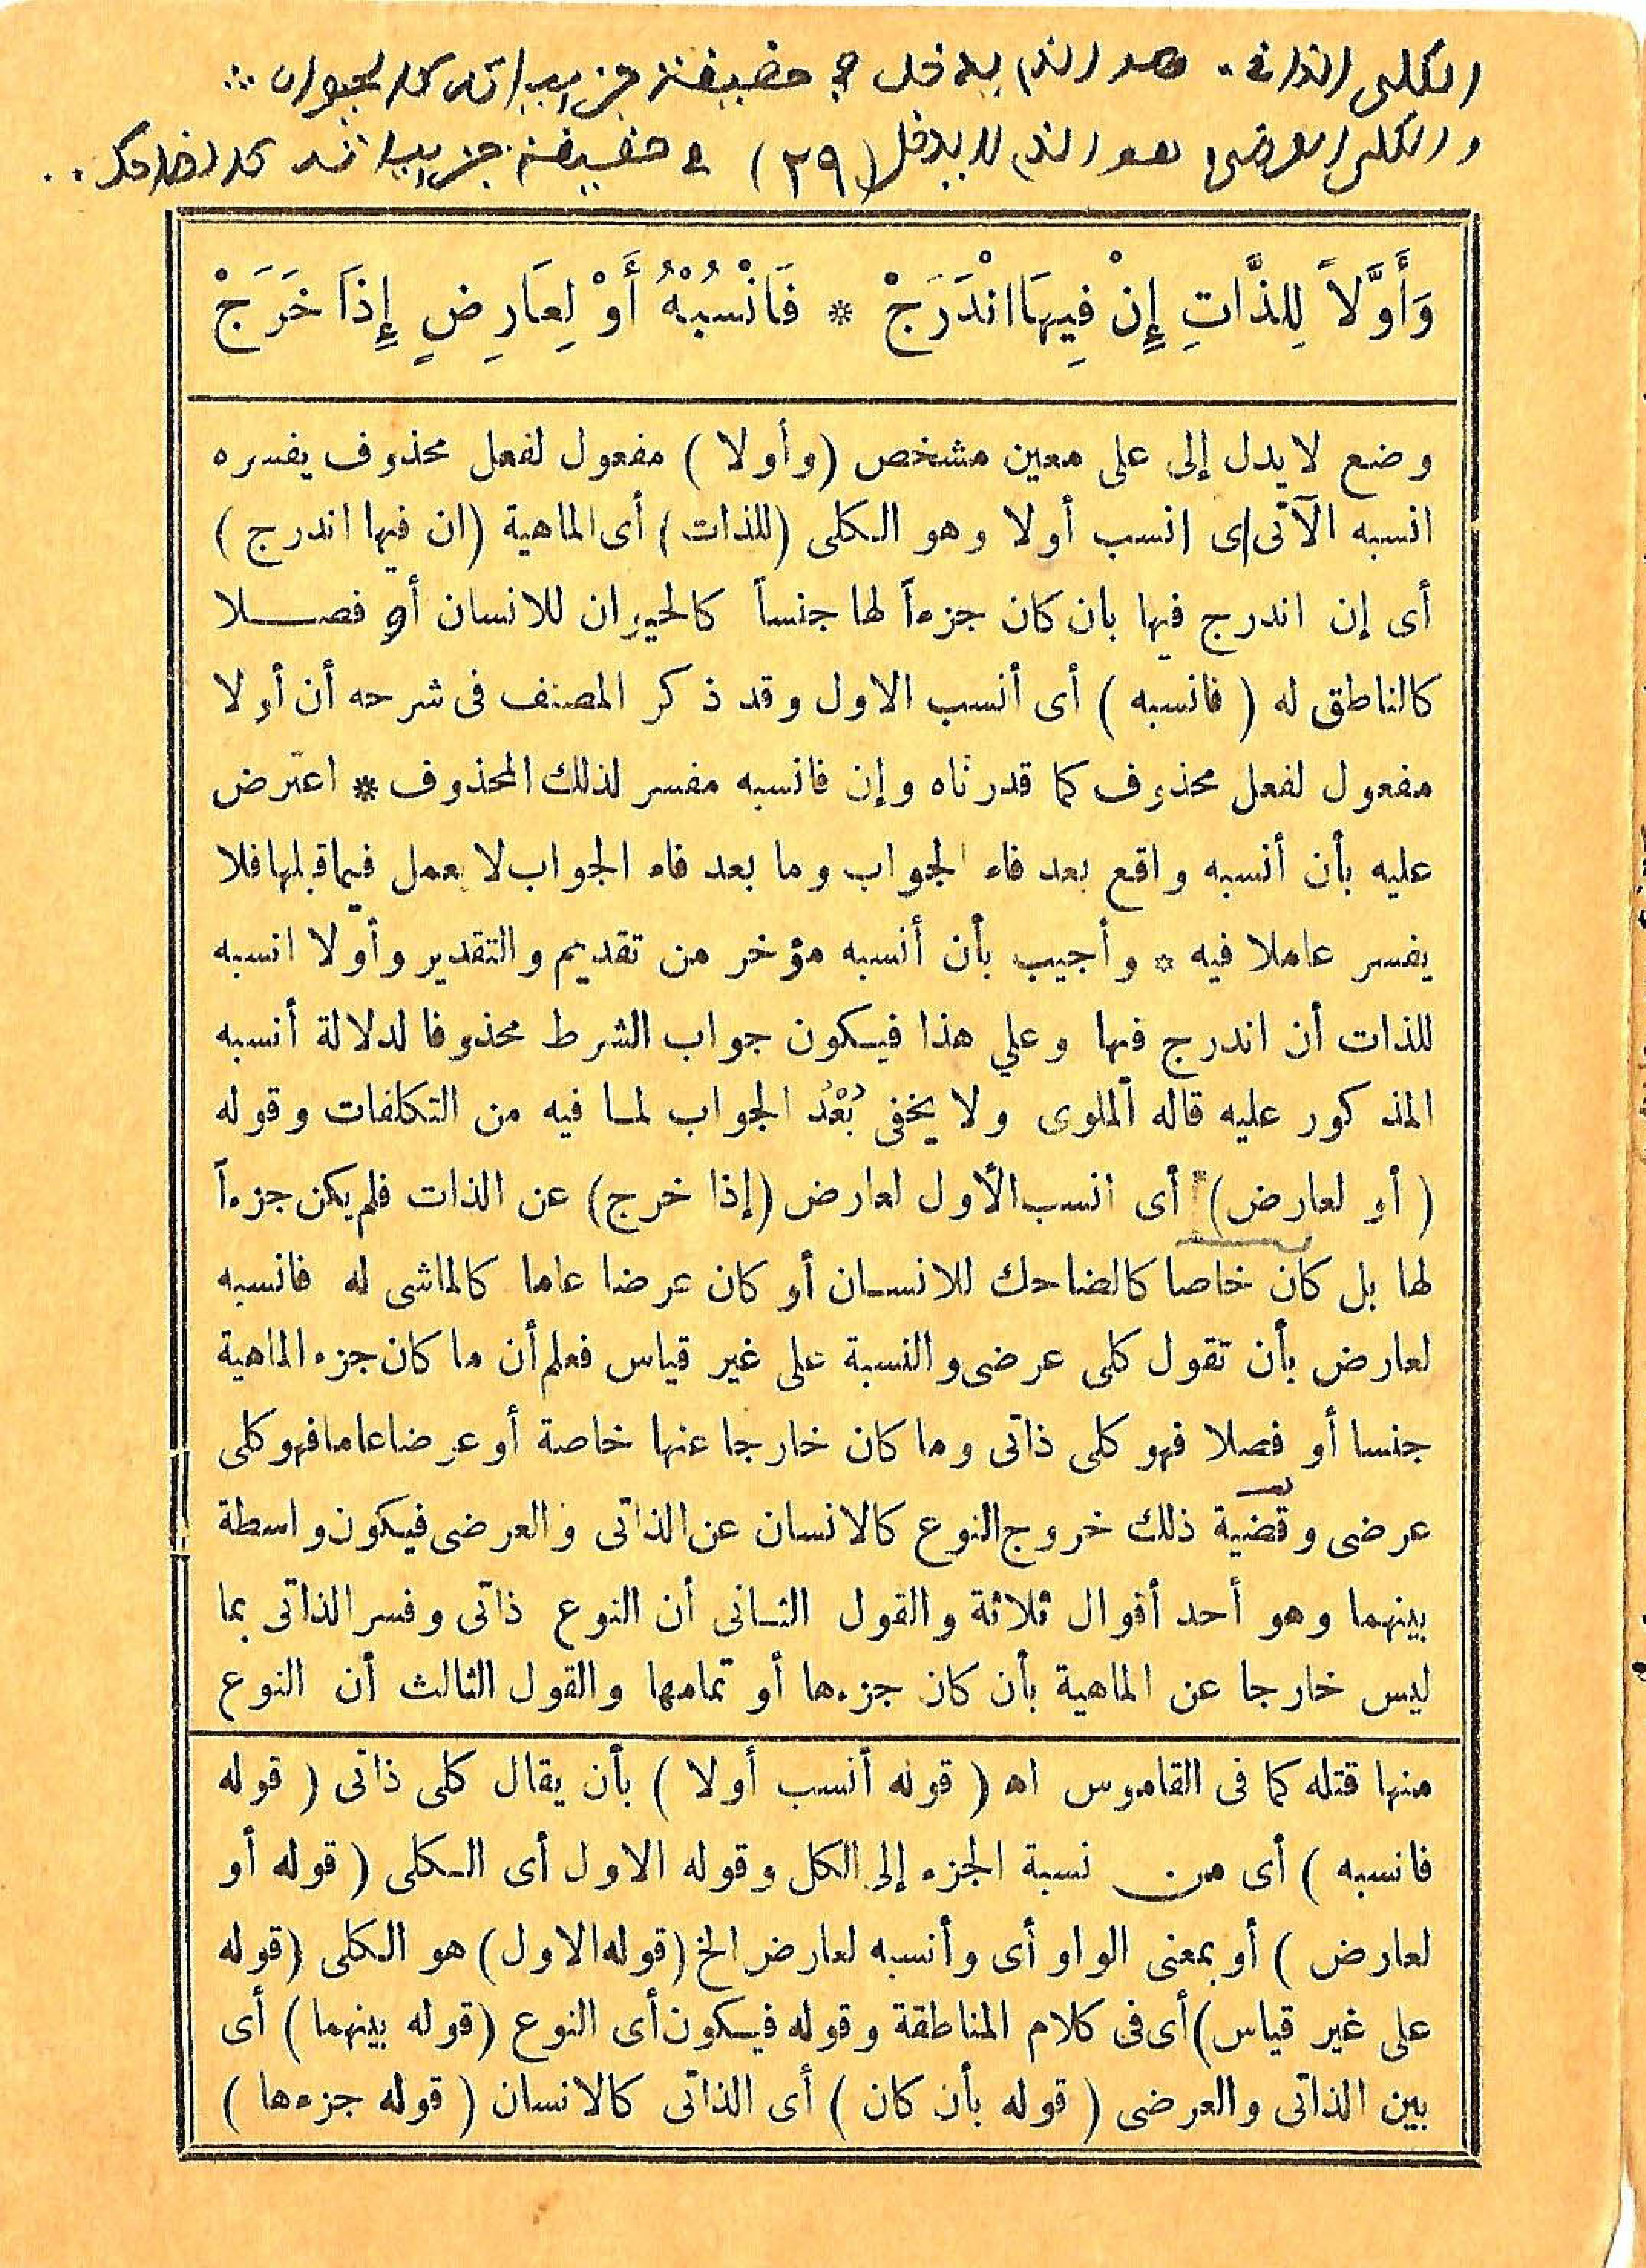 الكلى الذاتى هو الذى يدخل فى حقيقة جزيياته كالحيوان
والكلى العرضى هو الذى لا يدخل (٢٩) فى حقيقة جزيياته كالضاحك
وَأَوَّلاً لِلذَّاتِ إِنْ فِيهَا انْدَرَجْ * فَانْسُبْهُ أَوْ لِعَارِضٍ إِذَا خَرَجْ
وضع لا يدل إلى على معين مشخص (وأولا) مفعول لفعل محذوف يفسره
انسبه الآتى اى انسب أولا وهو الكلى (للذات) أى الماهية (ان فيها اندرج)
أى إن اندرج فيها بان كان جزءاً لها جنساً كالحيوان للانسان أو فصلا
كالناطق له (فانسبه) أى أنسب الاول وقد ذكر المصنف فى شرحه أن أولا
مفعول لفعل محذوف كما قدرناه وإن فانسبه مفسر لذلك المحذوف * اعترض
عليه بأن أنسبه واقع بعد فاء الجواب وما بعد فاء الجواب لا يعمل فيما قبلها فلا
يفسر عاملا فيه * وأجيب بأن أنسبه مؤخر من تقديم والتقدير وأولا انسبه
للذات أن اندرج فيها وعلي هذا فيكون جواب الشرط محذوفا لدلالة أنسبه
المذكور عليه قاله الملوى ولا يخفى بُعْدُ الجواب لما فيه من التكلفات وقوله
(أو لعارض) أى انسب الأول لعارض (إذا خرج) عن الذات فلم يكن جزءاً
لها بل كان خاصا كالضاحك للانسان أو كان عرضا عاما كالماشى له فانسبه
لعارض بأن تقول كلى عرضى والنسبة على غير قياس فعلم أن ما كان جزء الماهية
جنسا أو فصلا فهو كلى ذاتى وما كان خارجا عنها خاصة أو عرضا عاما فهو كلى
عرضى وقضية ذلك خروج النوع كالانسان عن الذاتى والعرضى فيكون واسطة
بينهما وهو أحد أقوال ثلاثة والقول الثانى أن النوع ذاتى وفسر الذاتى بما
ليس خارجا عن الماهية بأن كان جزءها أو تمامها والقول الثالث أن النوع
منها قتله كما فى القاموس اه (قوله أنسب أولا) بأن يقال كلى ذاتى (قوله
فانسبه) أى من نسبة الجزء إلى الكل وقوله الاول أى الكلى (قوله أو
لعارض) أو بمعنى الواو أى وأنسبه لعارض الخ (قوله الاول) هو الكلى (قوله
على غير قياس) أى فى كلام المناطقة وقوله فيكون أى النوع (قوله بينهما) أى
بين الذاتى والعرضى (قوله بأن كان) أى الذاتى كالانسان (قوله جزءها)